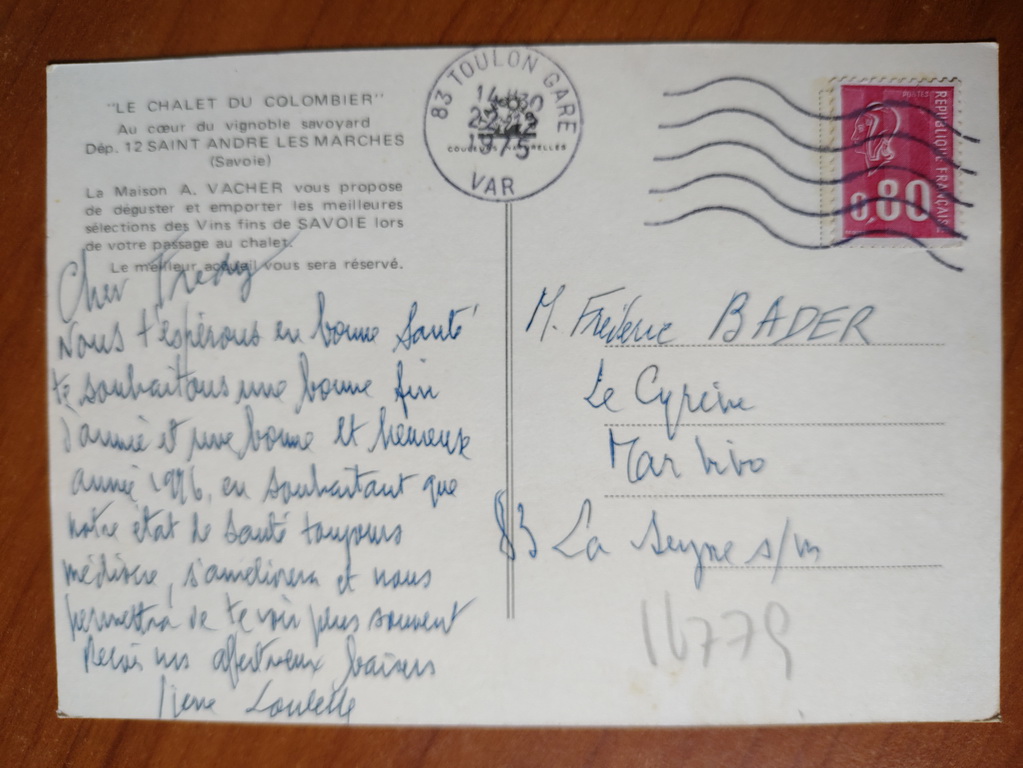 "LE CHALET DU COLOMBIER"
Au cœur du vignoble savoyard
Dép. 12 SAINT ANDRE LES MARCHES
(Savoie)
La Maison A. VACHER vous propose
de déguster et emporter les meilleures
sélections des Vins fins de SAVOIE lors
de votre passage au chalet.
Le meilleur accueil vous sera réservé.
Cher Fredy
Nous t'espérons en bonne Santé
te souhaitons une bonne fin
d'année et une bonne et heureuse
année 1976, en souhaitant que
notre état de santé toujours
médiocre, s'améliorera et nous
permettra de te voir plus souvent
Reçois nos affectueux baisers
Loulette
83 TOULON GARE
14 30
1975
VAR
POSTES
REPUBLIQUE FRANÇAISE
0,80
M. Fréderic BADER
Le Cyrène
Mar Vivo
83 La Seyne s/m
16779